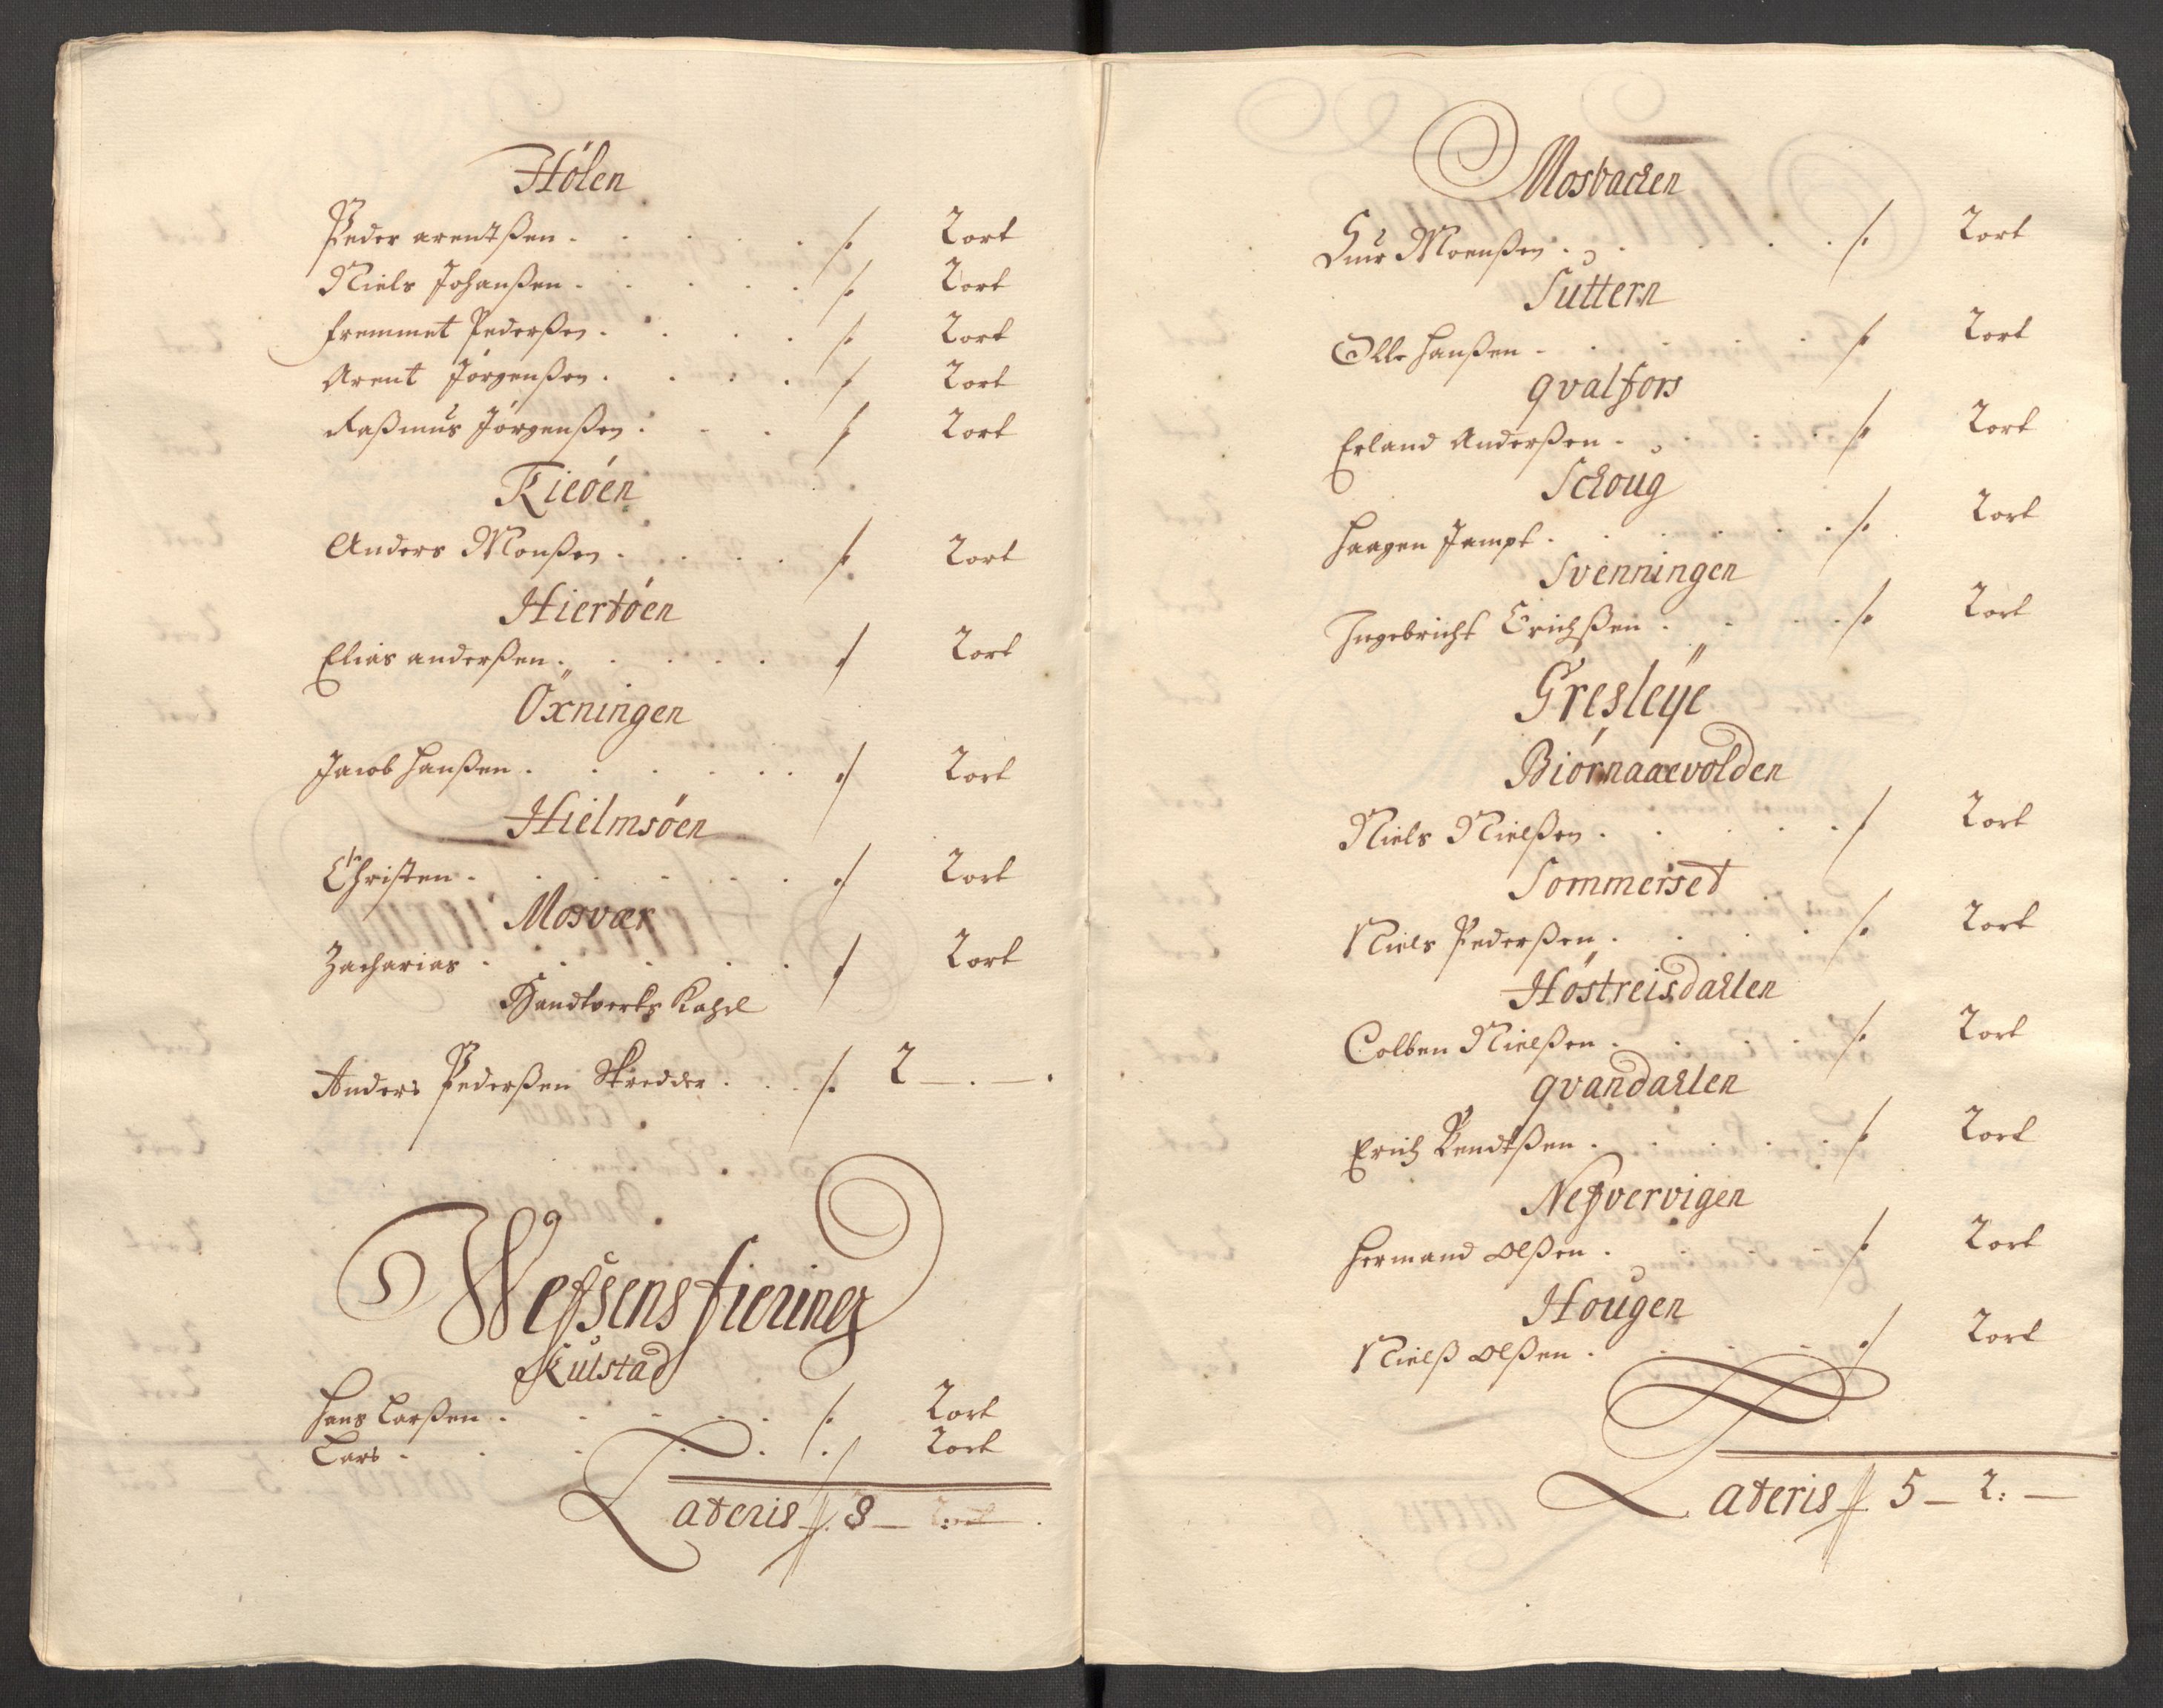 Hølen
Peder arentßen . . . . . /. 2 ort
Niels Johanßen . . . . . /. 2 ort
fremmet Pederßen . . . . /. 2 ort
Arent Jørgenßen . . . . /. 2 ort
Raßmus Jørgenßen . . . /. 2 ort
Rieøen
Anders Monßen . . . . /. 2 ort
Hiertøen
Elias anderßen . . . . . /. 2 ort
Öxningen
Jacob Hanßen . . . . . . /. 2 ort
Hielmsøen
Christen . . . . . . . /. 2 ort
Mosvær
Zacharias . . . . . . /. 2 ort
Handtverks
Anders Pederßen Skredder . . . /. 2 — . — .
Wefsens fiering
Kulstad
Hans Larßen . . . . . . /. 2 ort
Lars . . . . . . /. 2 ort
Lateris /. 8 —
Mosbacken
Moenßen . . . . . /. 2 ort
Suttern
Olle Hanßen . . . . . /. 2 ort
qvalfors
Erland Anderßen . . . . . /. 2 ort
Schoug
Haagen Jampt . . . . . . /. 2 ort
Svenningen
Ingebricht Erichßen . . . . /. 2 ort
Gresleÿe
Biørnaaevolden
Niels Nielßen . . . . . /. 2 ort
Sommerset
Niels Pederßen . . . . /. 2 ort
Høstreisdallen
Colben Nielßen . . . . /. 2 ort
qvandallen
Erich Bendtßen . . . . . /. 2 ort
Nefvervigen
Hermand olßen . . . . /. 2 ort
Hougen
Nielß olßen . . . . /. 2 ort
Lateris /. 5 — 2 : —